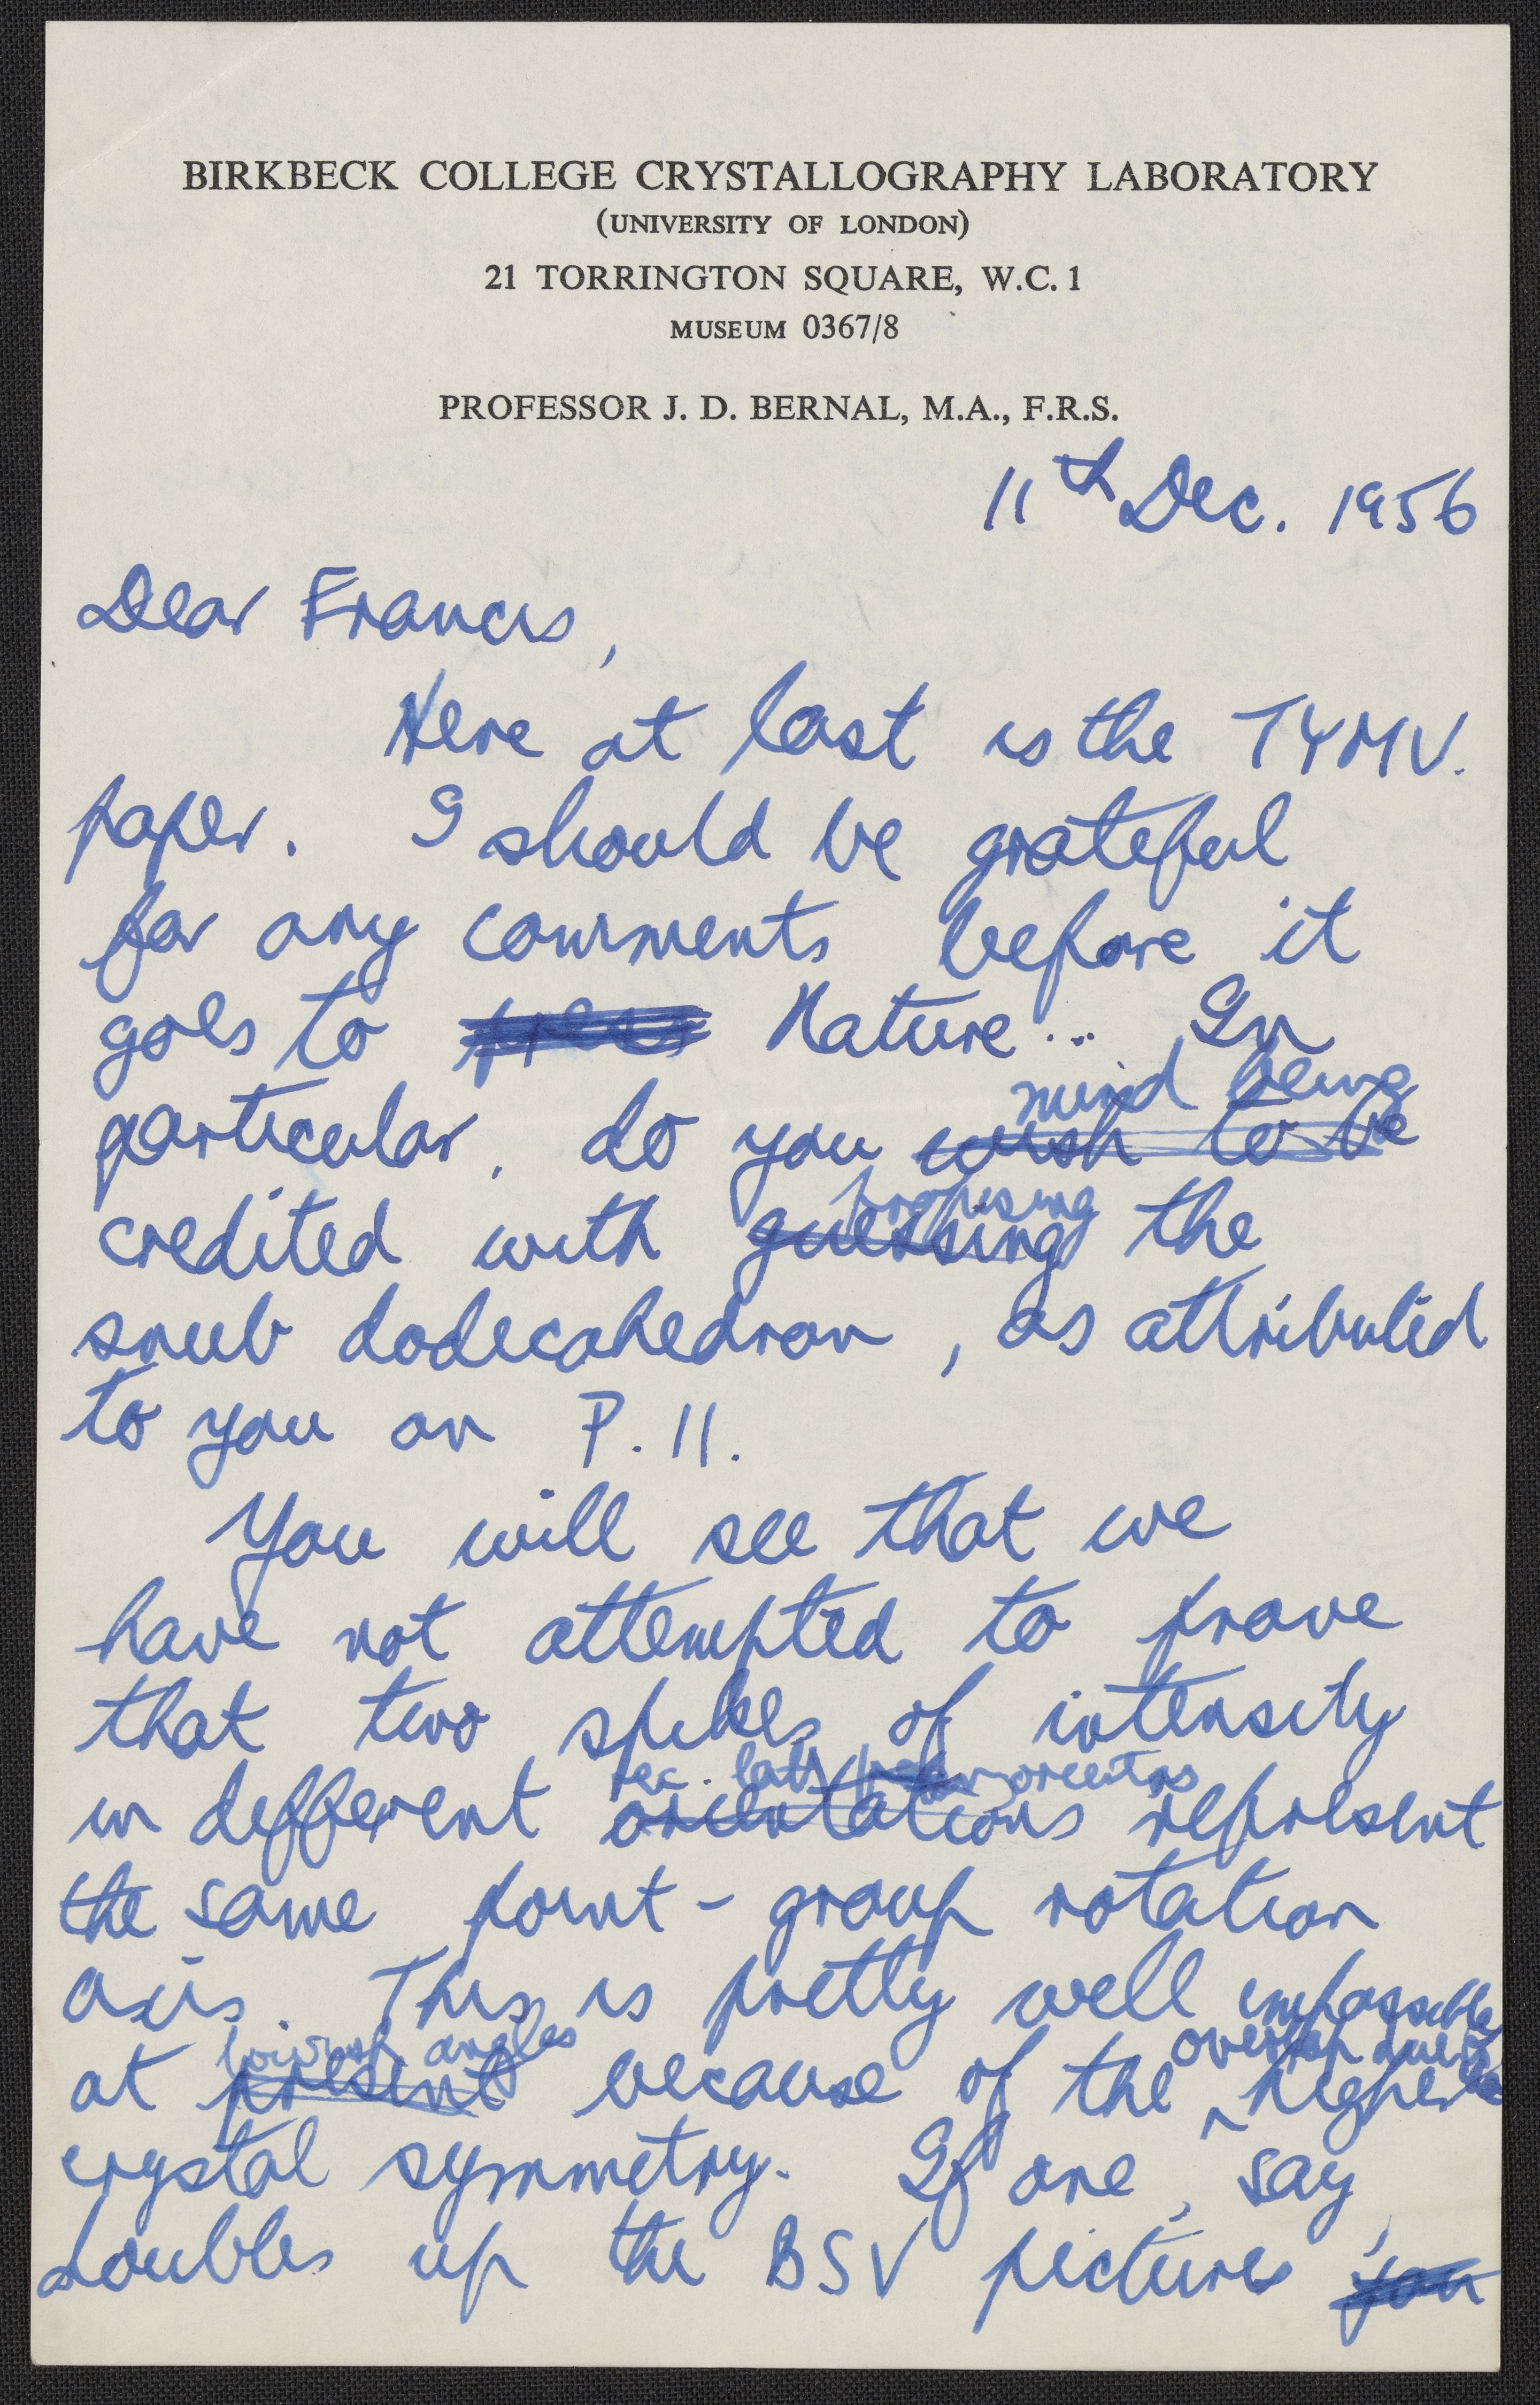 BIRKBECK COLLEGE CRYSTALLOGRAPHY LABORATORY
(UNIVERSITY OF LONDON)
21 TORRINGTON SQUARE, W.C. 1
MUSEUM 0367/8
PROFESSOR J. D. BERNAL, M.A., F.R.S.
11th Dec. 1956
Dear Francis,
Here at last is the TYMV.
paper. I should be grateful
for any comments before it
goes to press Nature... In
mind being
particular, do you wish to be
proposing
credited with guessing the
snub dodecahedron, as attributed
to you on P. 11.
You will see that we
have not attempted to prove
that two spikes of intensity
rec. latt. orientns
in different orientations represent
the same point-group rotation
axis. This is pretty well impossible
lowish angles overlap
at present because of the higher
crystal symmetry. If one, say,
doubles up the BSV pictures you